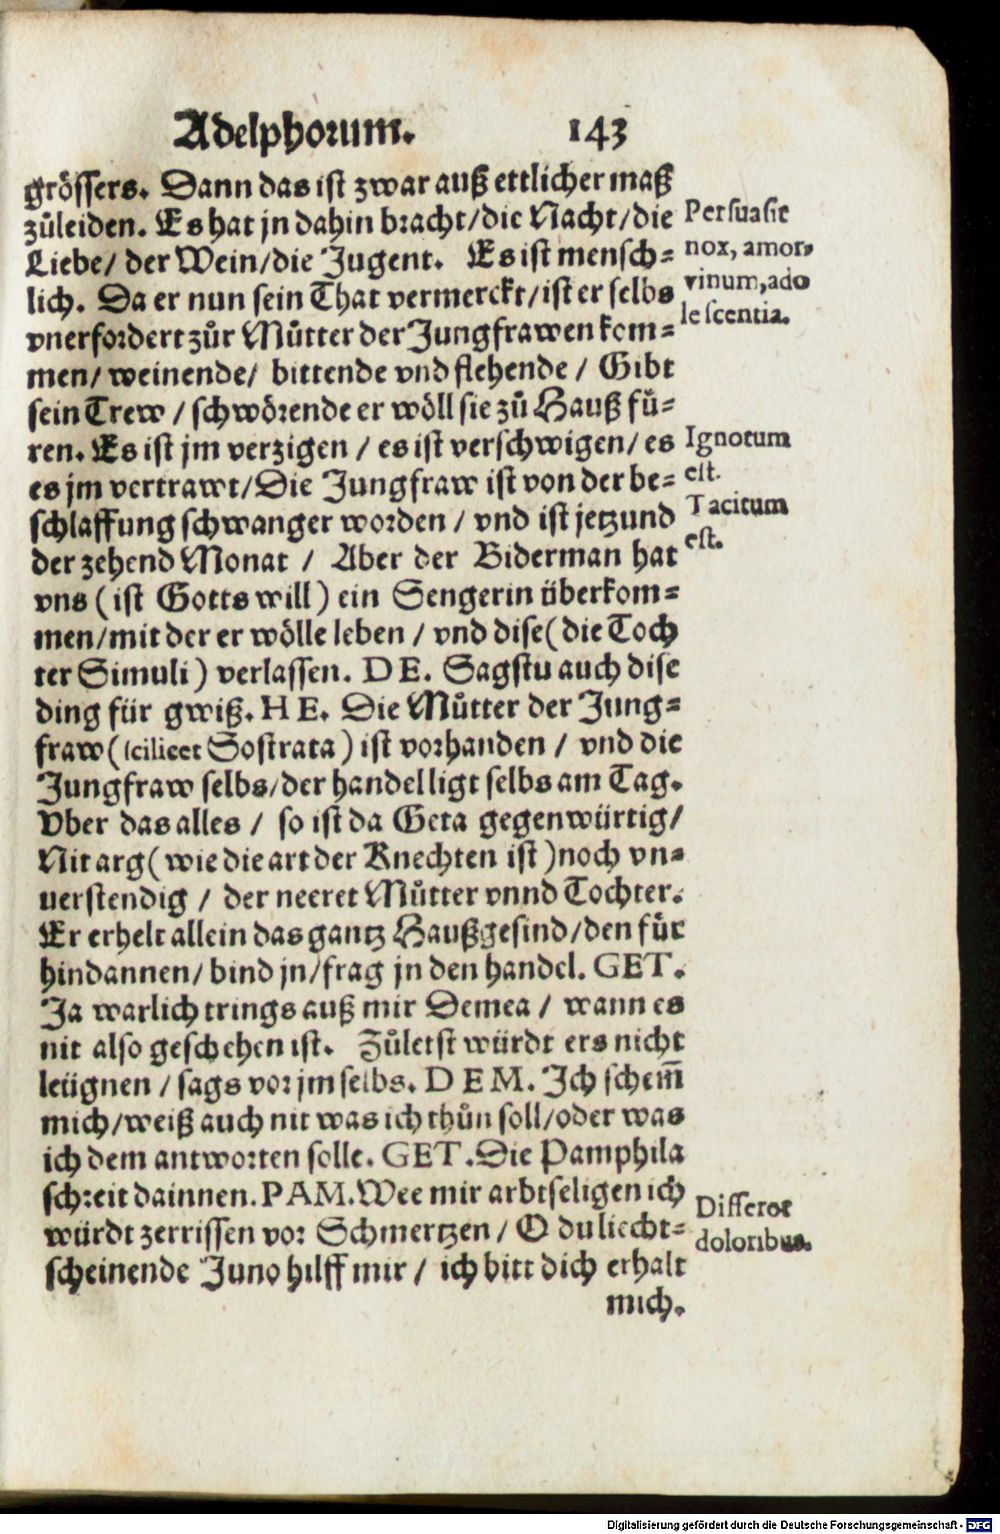 Adelphorum. 143
grössers. Dann das ist zwar auß ettlicher maß
zůleiden. Es hat jn dahin bracht/die Nacht/die
Liebe/ der Wein/die Jugent. Es ist mensch-
lich. Da er nun sein That vermerckt/ist er selbs
vnerfordert zůr Můtter der Jungfrawen kom-
men/ weinende/ bittende vnd flehende / Gibt
sein Trew / schwörende er wöll sie zů Hauß fů-
ren. Es ist jm verzigen / es ist verschwigen/ es
es jm vertrawt/Die Jungfraw ist von der be-
schlaffung schwanger worden / vnd ist jetzund
der zehend Monat / Aber der Biderman hat
vns (ist Gotts will) ein Sengerin überkom-
men/mit der er wölle leben / vnd dise(die Toch
ter Simuli) verlassen. DE. Sagstu auch dise
ding für gwiß. HE. Die Můtter der Jung-
fraw(scilicet Sostrata) ist vorhanden / vnd die
Jungfraw selbs/der handel ligt selbs am Tag.
Vber das alles / so ist da Geta gegenwürtig/
Nit arg(wie die art der Knechten ist)noch vn-
uerstendig / der neeret Můtter vnnd Tochter.
Er erhelt allein das gantz Haußgesind/den fůr
hindannen/bind jn/frag jn den handel. GET.
Ja warlich trings auß mir Demea / wann es
nit also geschehen ist. Zůletst würdt ers nicht
leügnen / sags vor jm selbs. DEM. Ich schem̄
mich/weiß auch nit was ich thůn soll/oder was
ich dem antworten solle. GET. Die Pamphila
schreit dainnen. PAM. Wee mir arbtseligen ich
würdt zerrissen vor Schmertzen / O du liecht-
scheinende Juno hilff mir / ich bitt dich erhalt
mich.
Persuasit
nox, amor,
vinum, ado
lescentia.
Ignotum
est.
Tacitum
est.
Differor
doloribus.
Digitalisierung gefördert durch die Deutsche Forschungsgemeinschaft - DFG